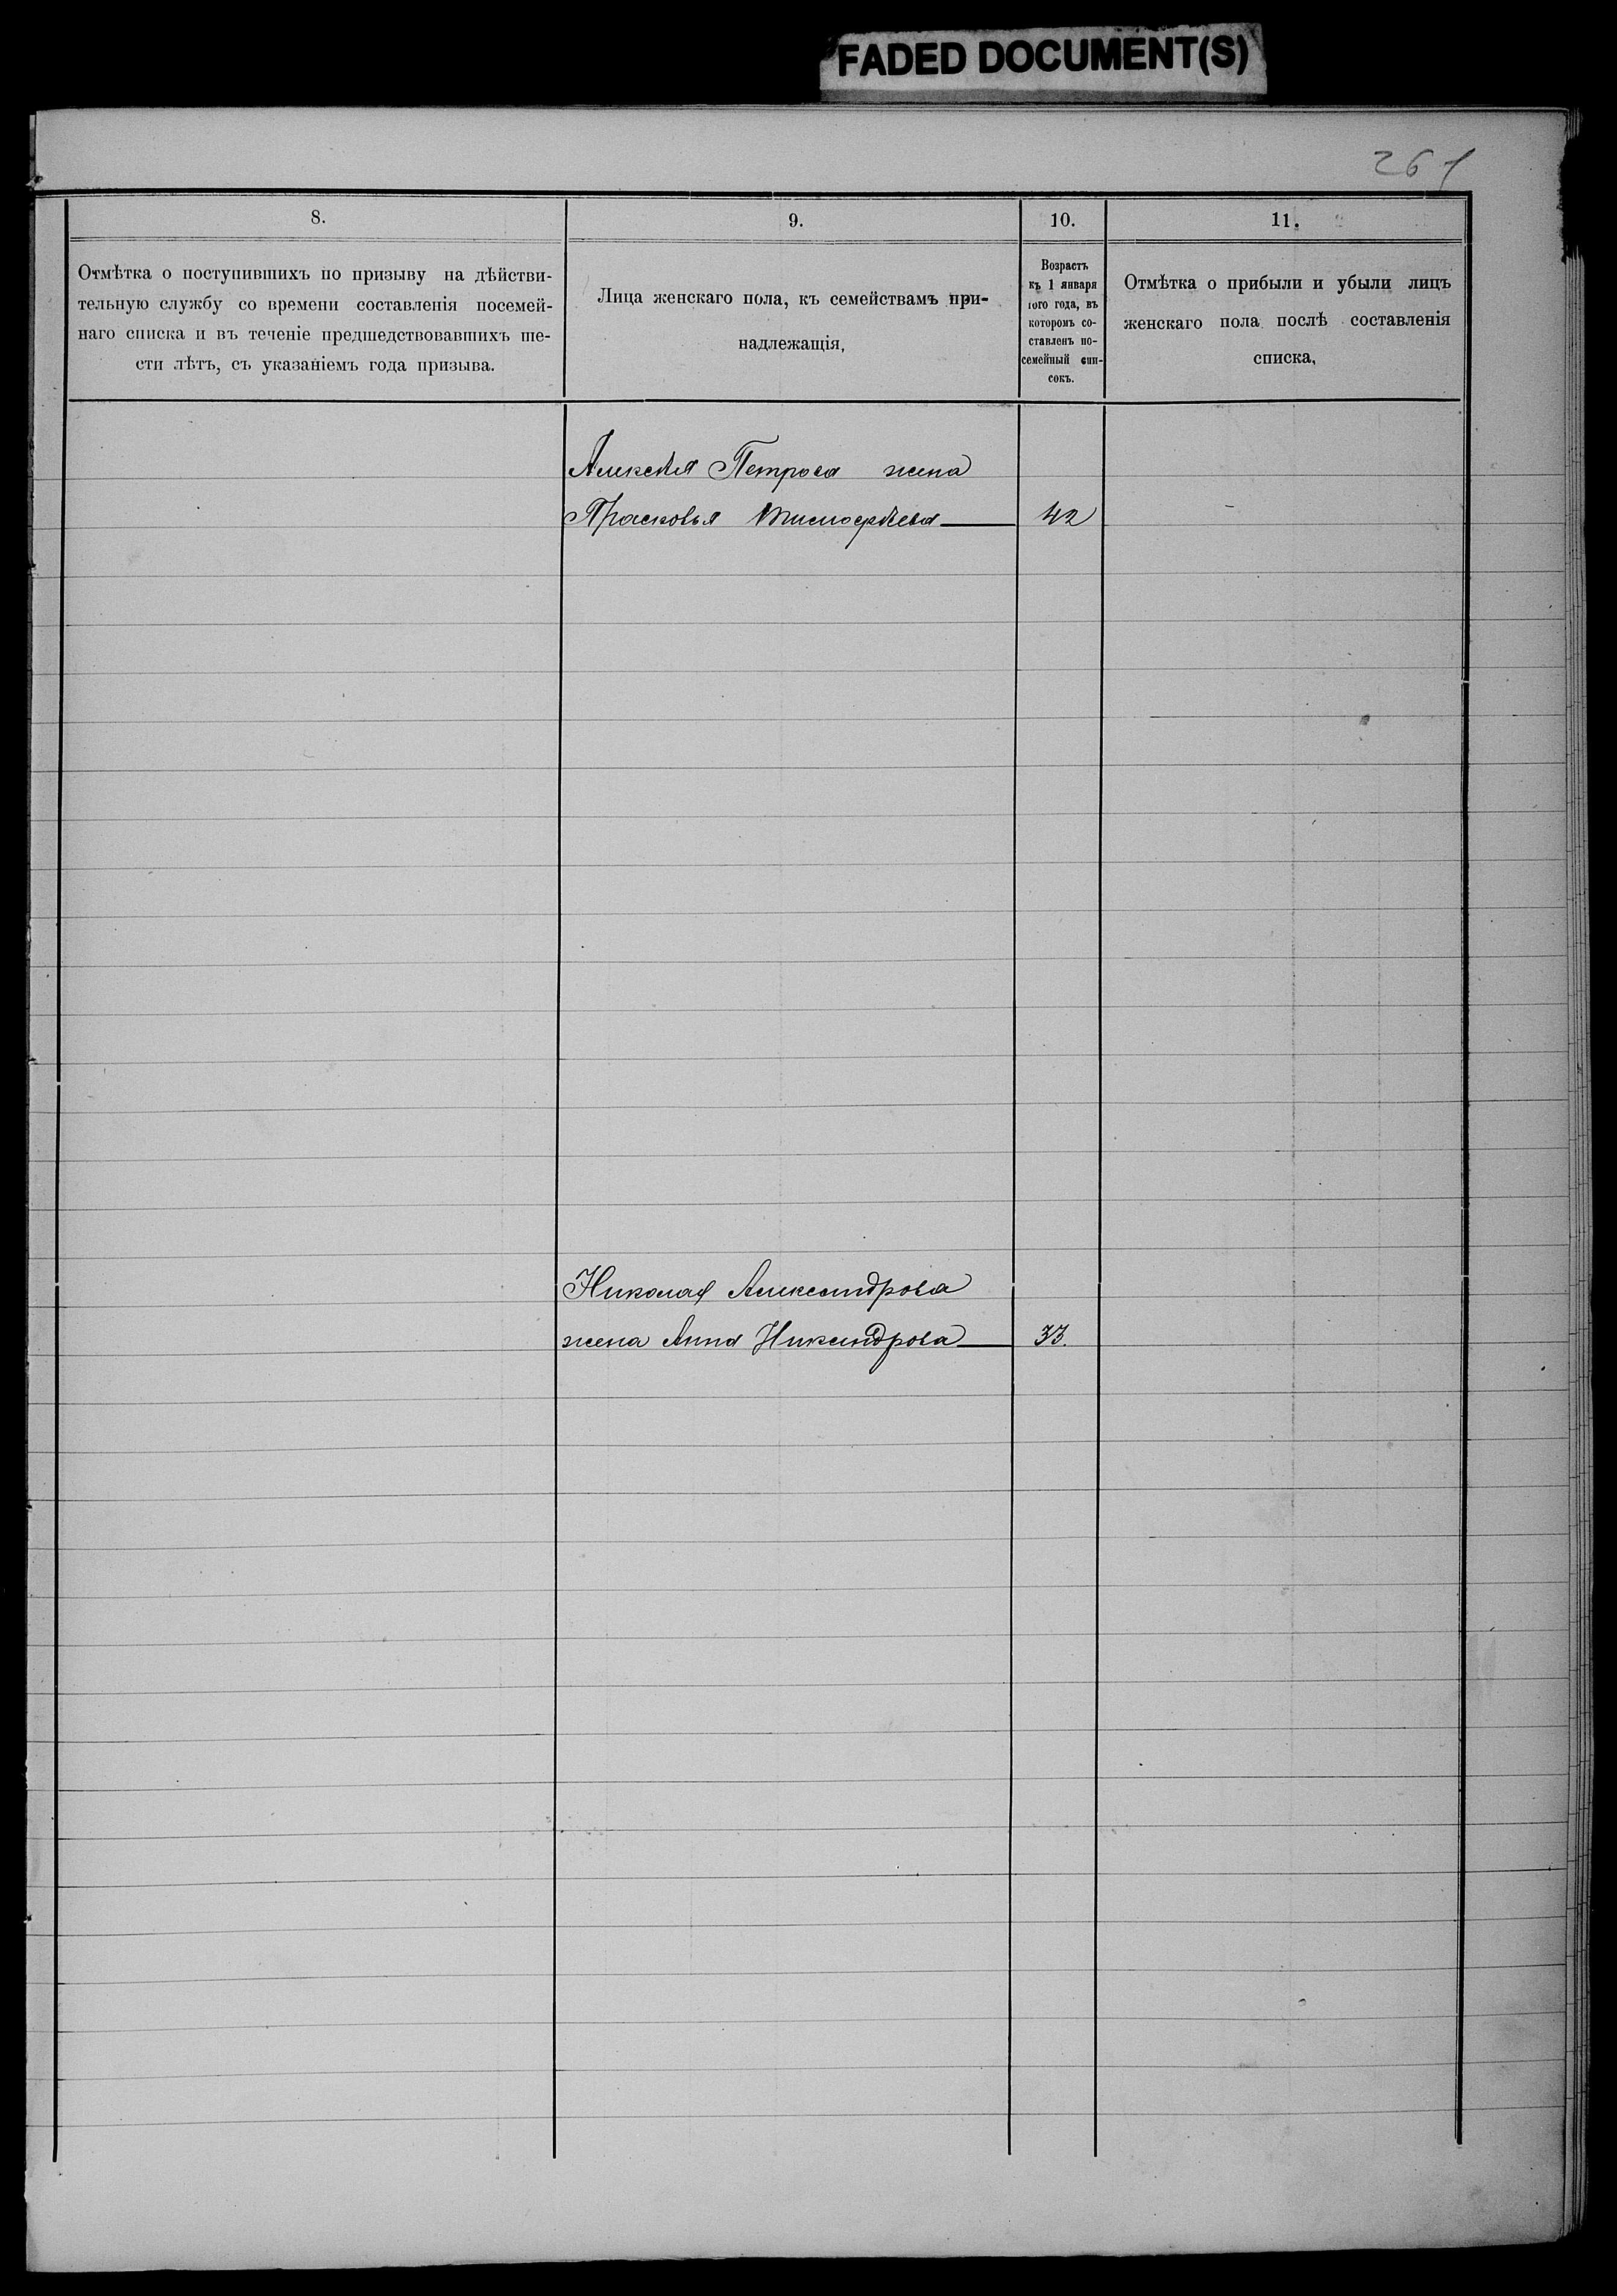 FADED DOCUMENT(S)
261
8.
Отмѣтка о поступившихъ по призыву на дѣйстви-
тельную службу со времени составленія посемей-
наго списка и въ теченіе предшедствовавшихъ ше-
сти лѣтъ, съ указаніемъ года призыва.
9.
Лица женскаго пола, къ семействамъ при-
надлежащія,
10.
Возрастъ
къ 1 января
того года, въ
которомъ со-
ставленъ по-
семейный спи-
сокъ.
11.
Отмѣтка о прибыли и убыли лицъ
женскаго пола послѣ составленія
списка,
Алексѣя Петрова жена
Прасковья 42
Николая Александрова
жена Анна Никандрова 33.